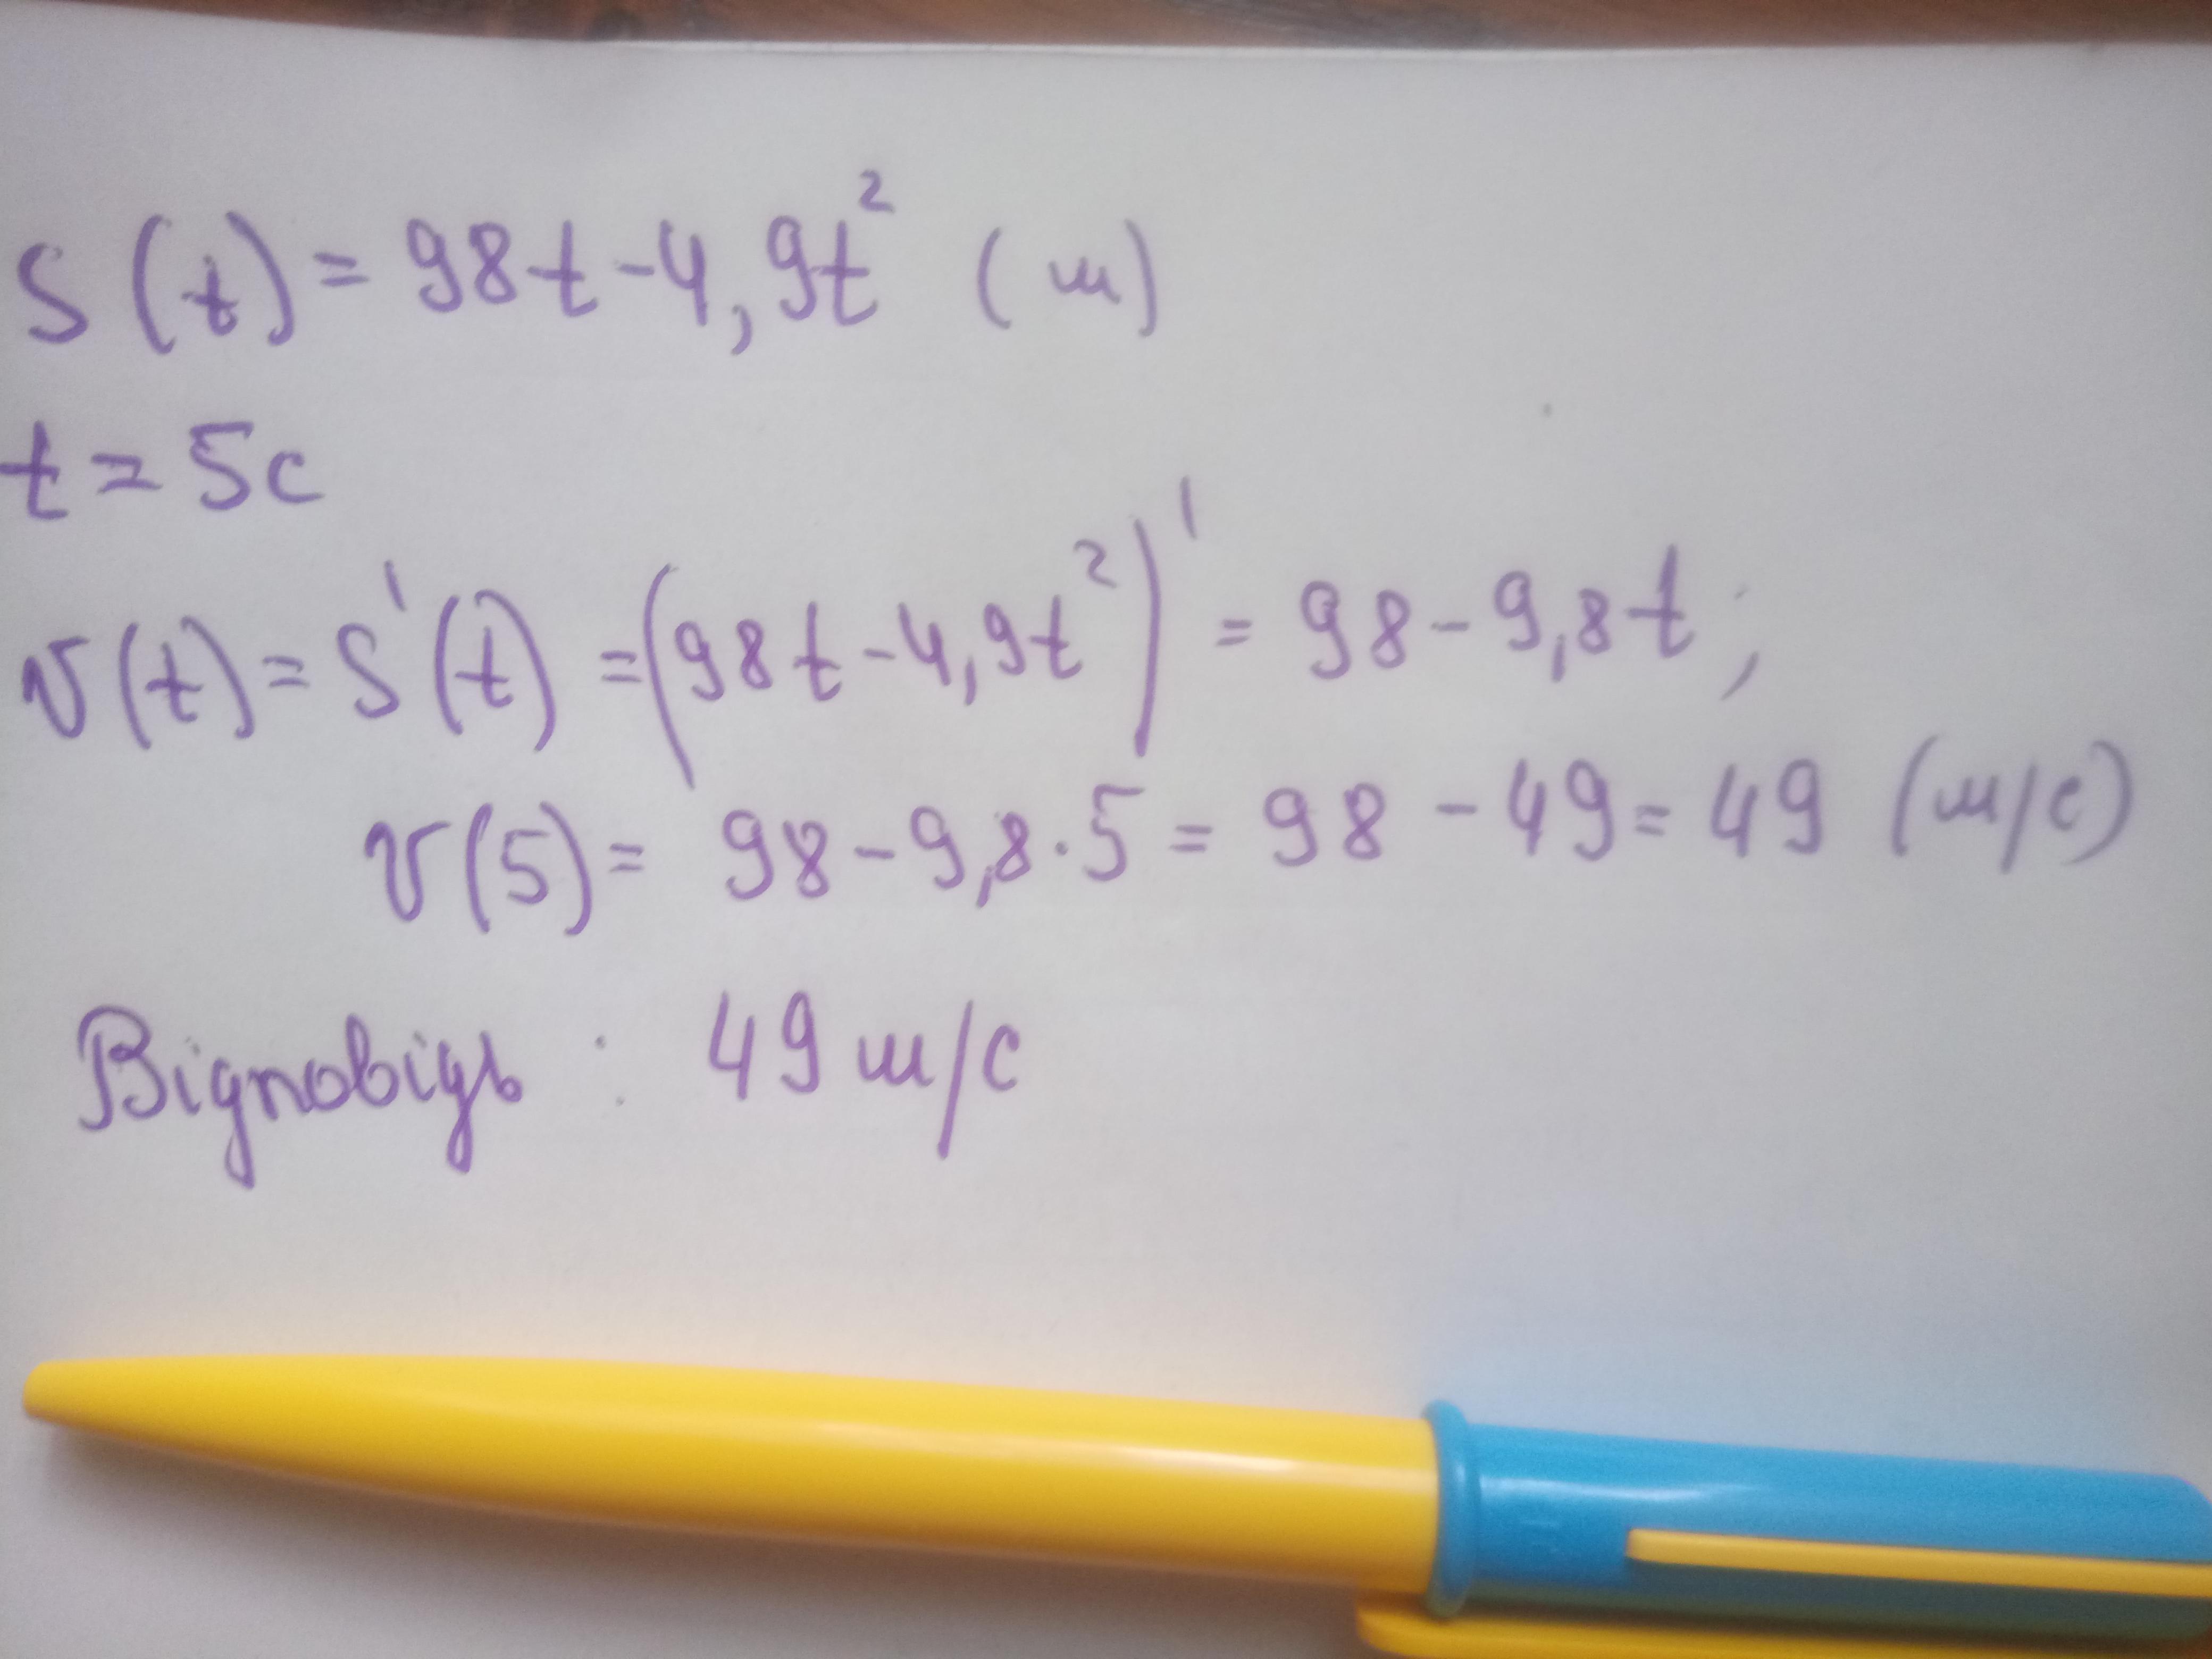 S(t) = 98t - 4,9t² (м)
t = 5c
v(t) = S'(t) = (98t - 4,9t²)' = 98 - 9,8t;
v(5) = 98 - 9,8·5 = 98 - 49 = 49 (м/с)
Відповідь: 49 м/с